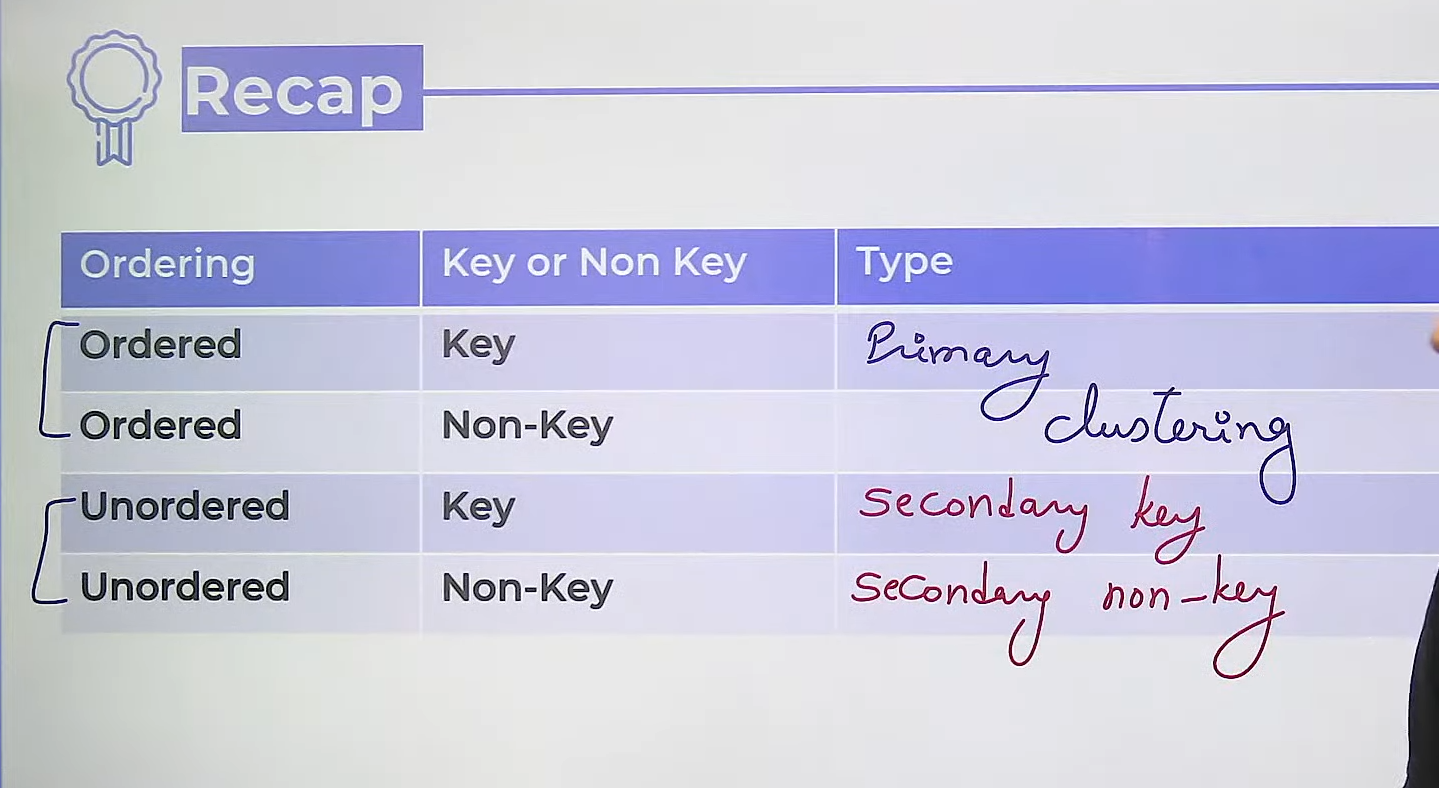 Recap
Ordering Key or Non Key Type
Ordered Key Primary
Ordered Non-Key clustering
Unordered Key Secondary key
Unordered Non-Key Secondary non-key